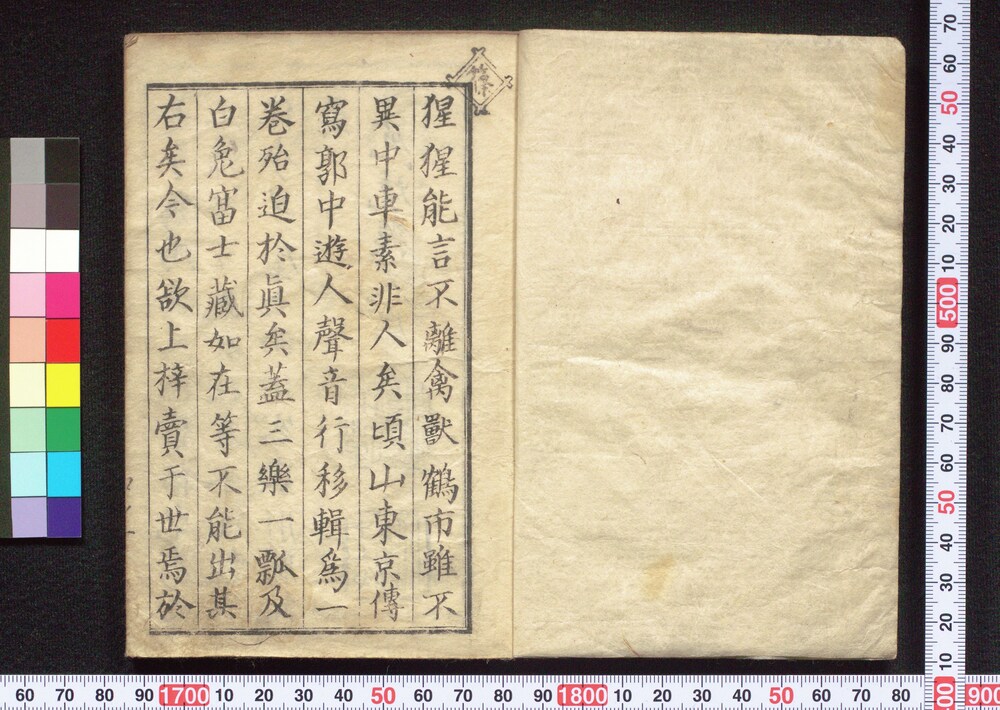 猩猩能言不離禽獸鶴市雖不
異中車素非人矣頃山東京傳
寫郭中遊人聲音行移輯爲一
卷殆迫於眞矣蓋三樂一瓢及
白兔富士藏如在等不能出其
右矣今也欲上梓賣于世焉於
60 70 80 90 1700 10 20 30 40 50 60 70 80 90 1800 10 20 30 40 50 60 70 80
70 60 50 40 30 20 10 500 90 80 70 60 50 40 30 20 10
900